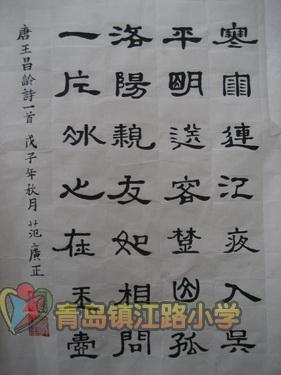 寒雨連江夜入吳
平明送客楚山孤
洛陽親友如相問
一片冰心在玉壺
唐王昌齡詩一首 戊子年秋月 范廣正
青岛镇江路小学